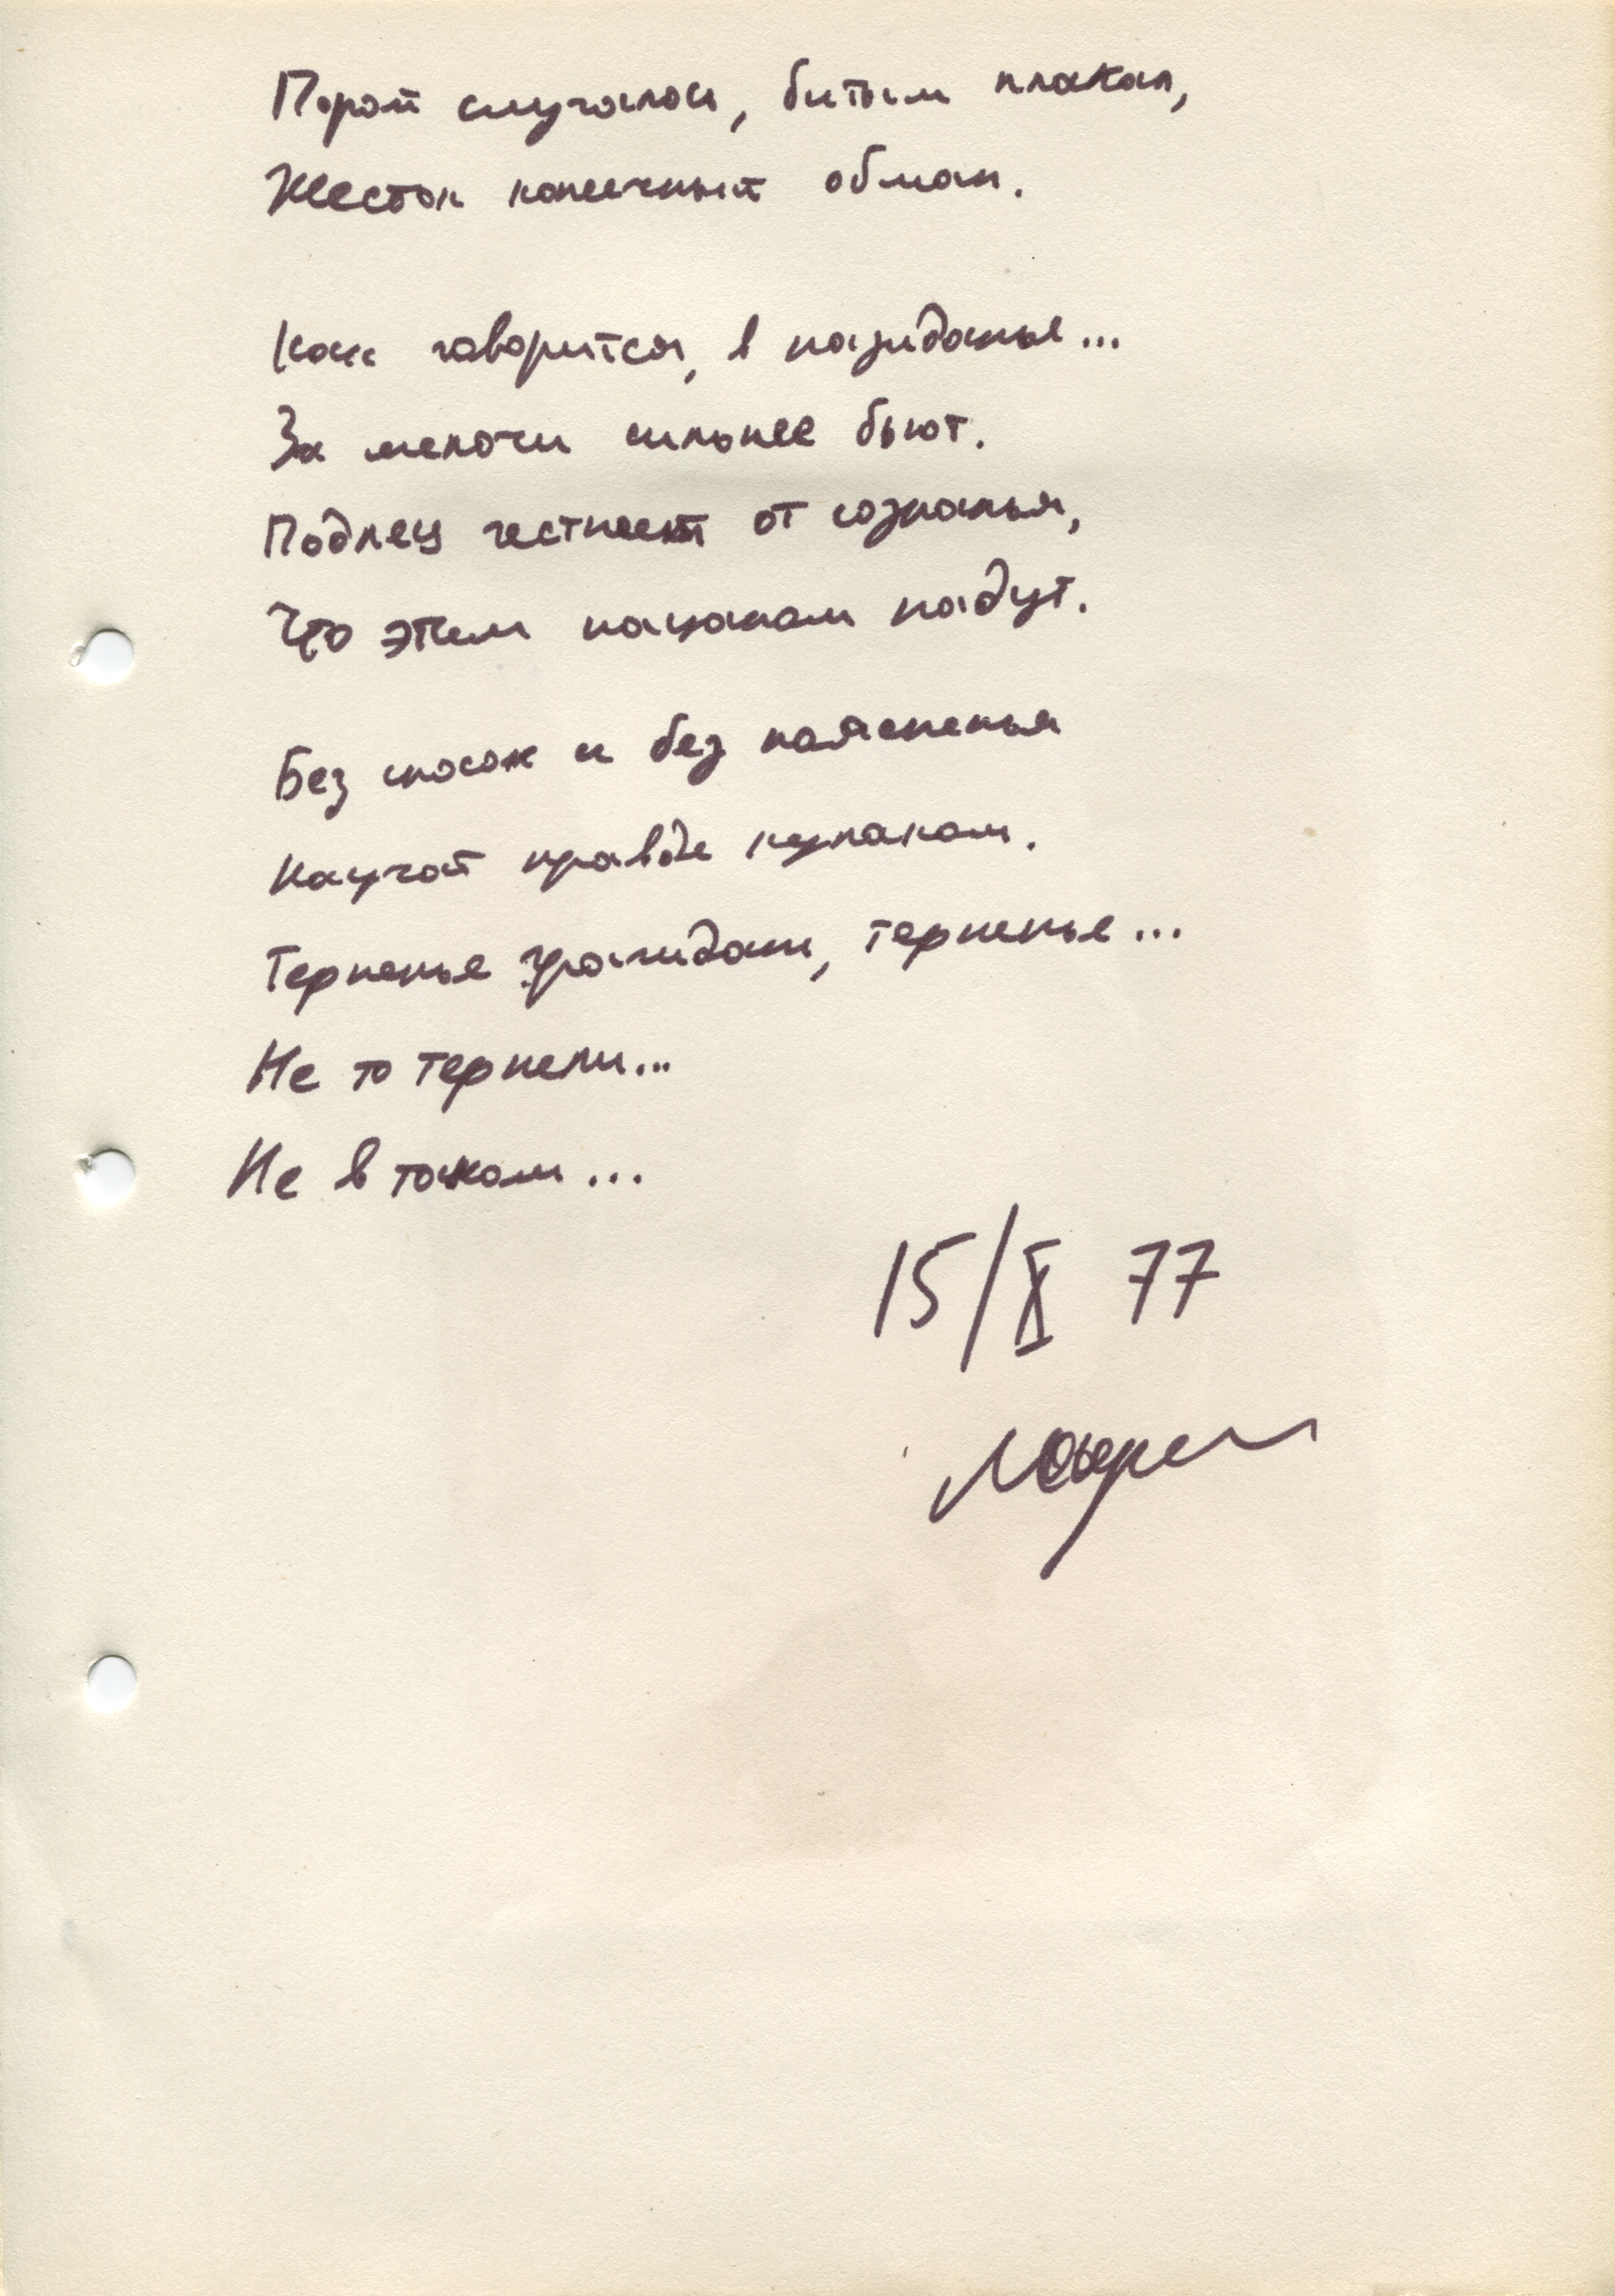 Порой случалось, битым плакал,
Жесток копеечный обман.
Как говорится, в назиданье...
За мелочи сильнее бьют.
Подлец честнеет от сознанья,
Что этим пацанам падут.
Без сносок и без пояснення
Научат правде кулаком.
Терпенье граждане, терпенье...
Не то терпели...
Не в таком...
15/X 77